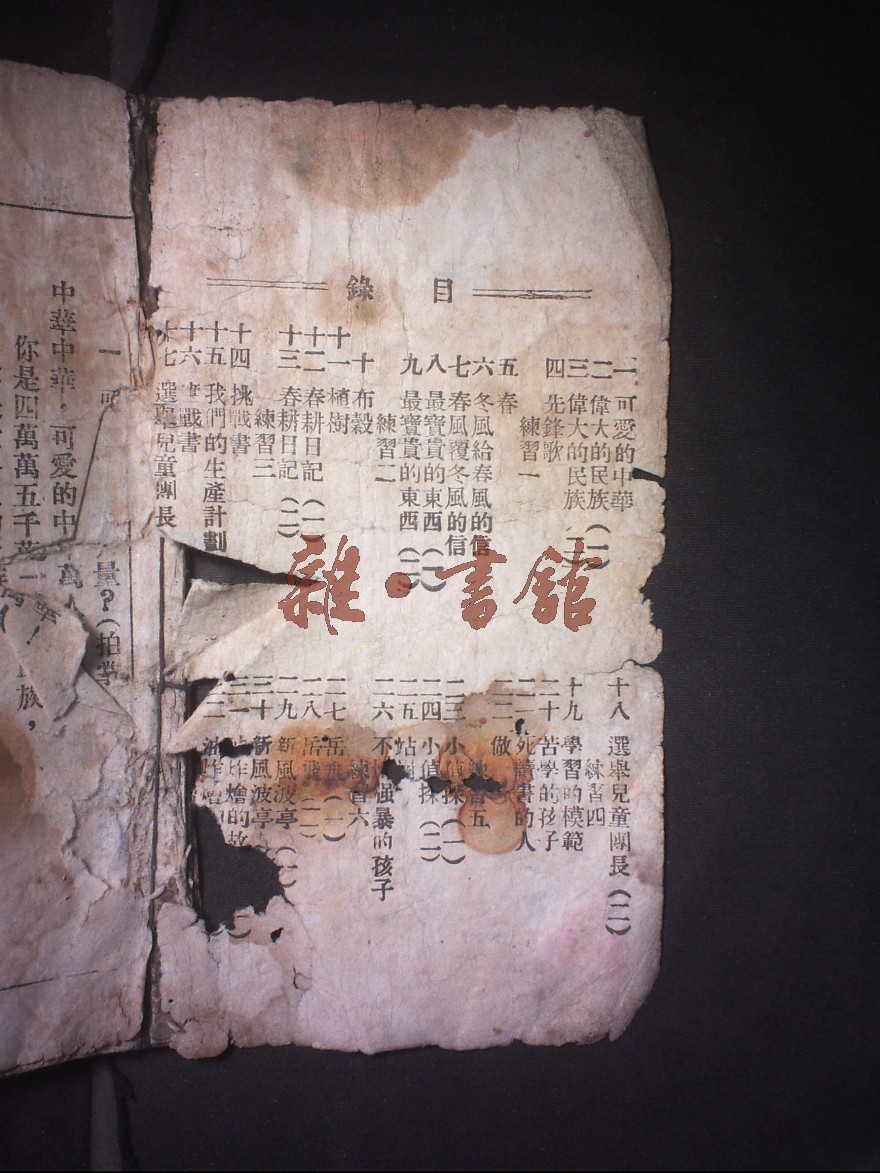 目錄
一 可愛的中華
二 偉大的民族（一）
三 偉大的民族（二）
四 先鋒歌
練習一
五 春
六 冬風給春風的信
七 春風覆冬風的信
八 最寶貴的東西（一）
九 最寶貴的東西（二）
練習二
十 布穀
十一 植樹
十二 春耕日記（一）
十三 春耕日記（二）
練習三
十四 挑戰書
十五 我們的生產計劃
十六 戰書
十七 選舉兒童團長
十八 選舉兒童團長（二）
練習四
十九 學習的模範
二十 苦學的孩子
二一 死讀書的人
二二 做
練習五
二三 小偵探（一）
二四 小偵探（二）
二五 站
二六 不 强暴的孩子
練習六
二七 岳飛（一）
二八 岳飛（二）
二九 新風波亭（一）
三十 新風波亭
三一 炸燴的故
二 油炸燴
一 可
量？（拍掌
中華中華，可愛的中
你是四萬萬五千萬
族，
雜·書館